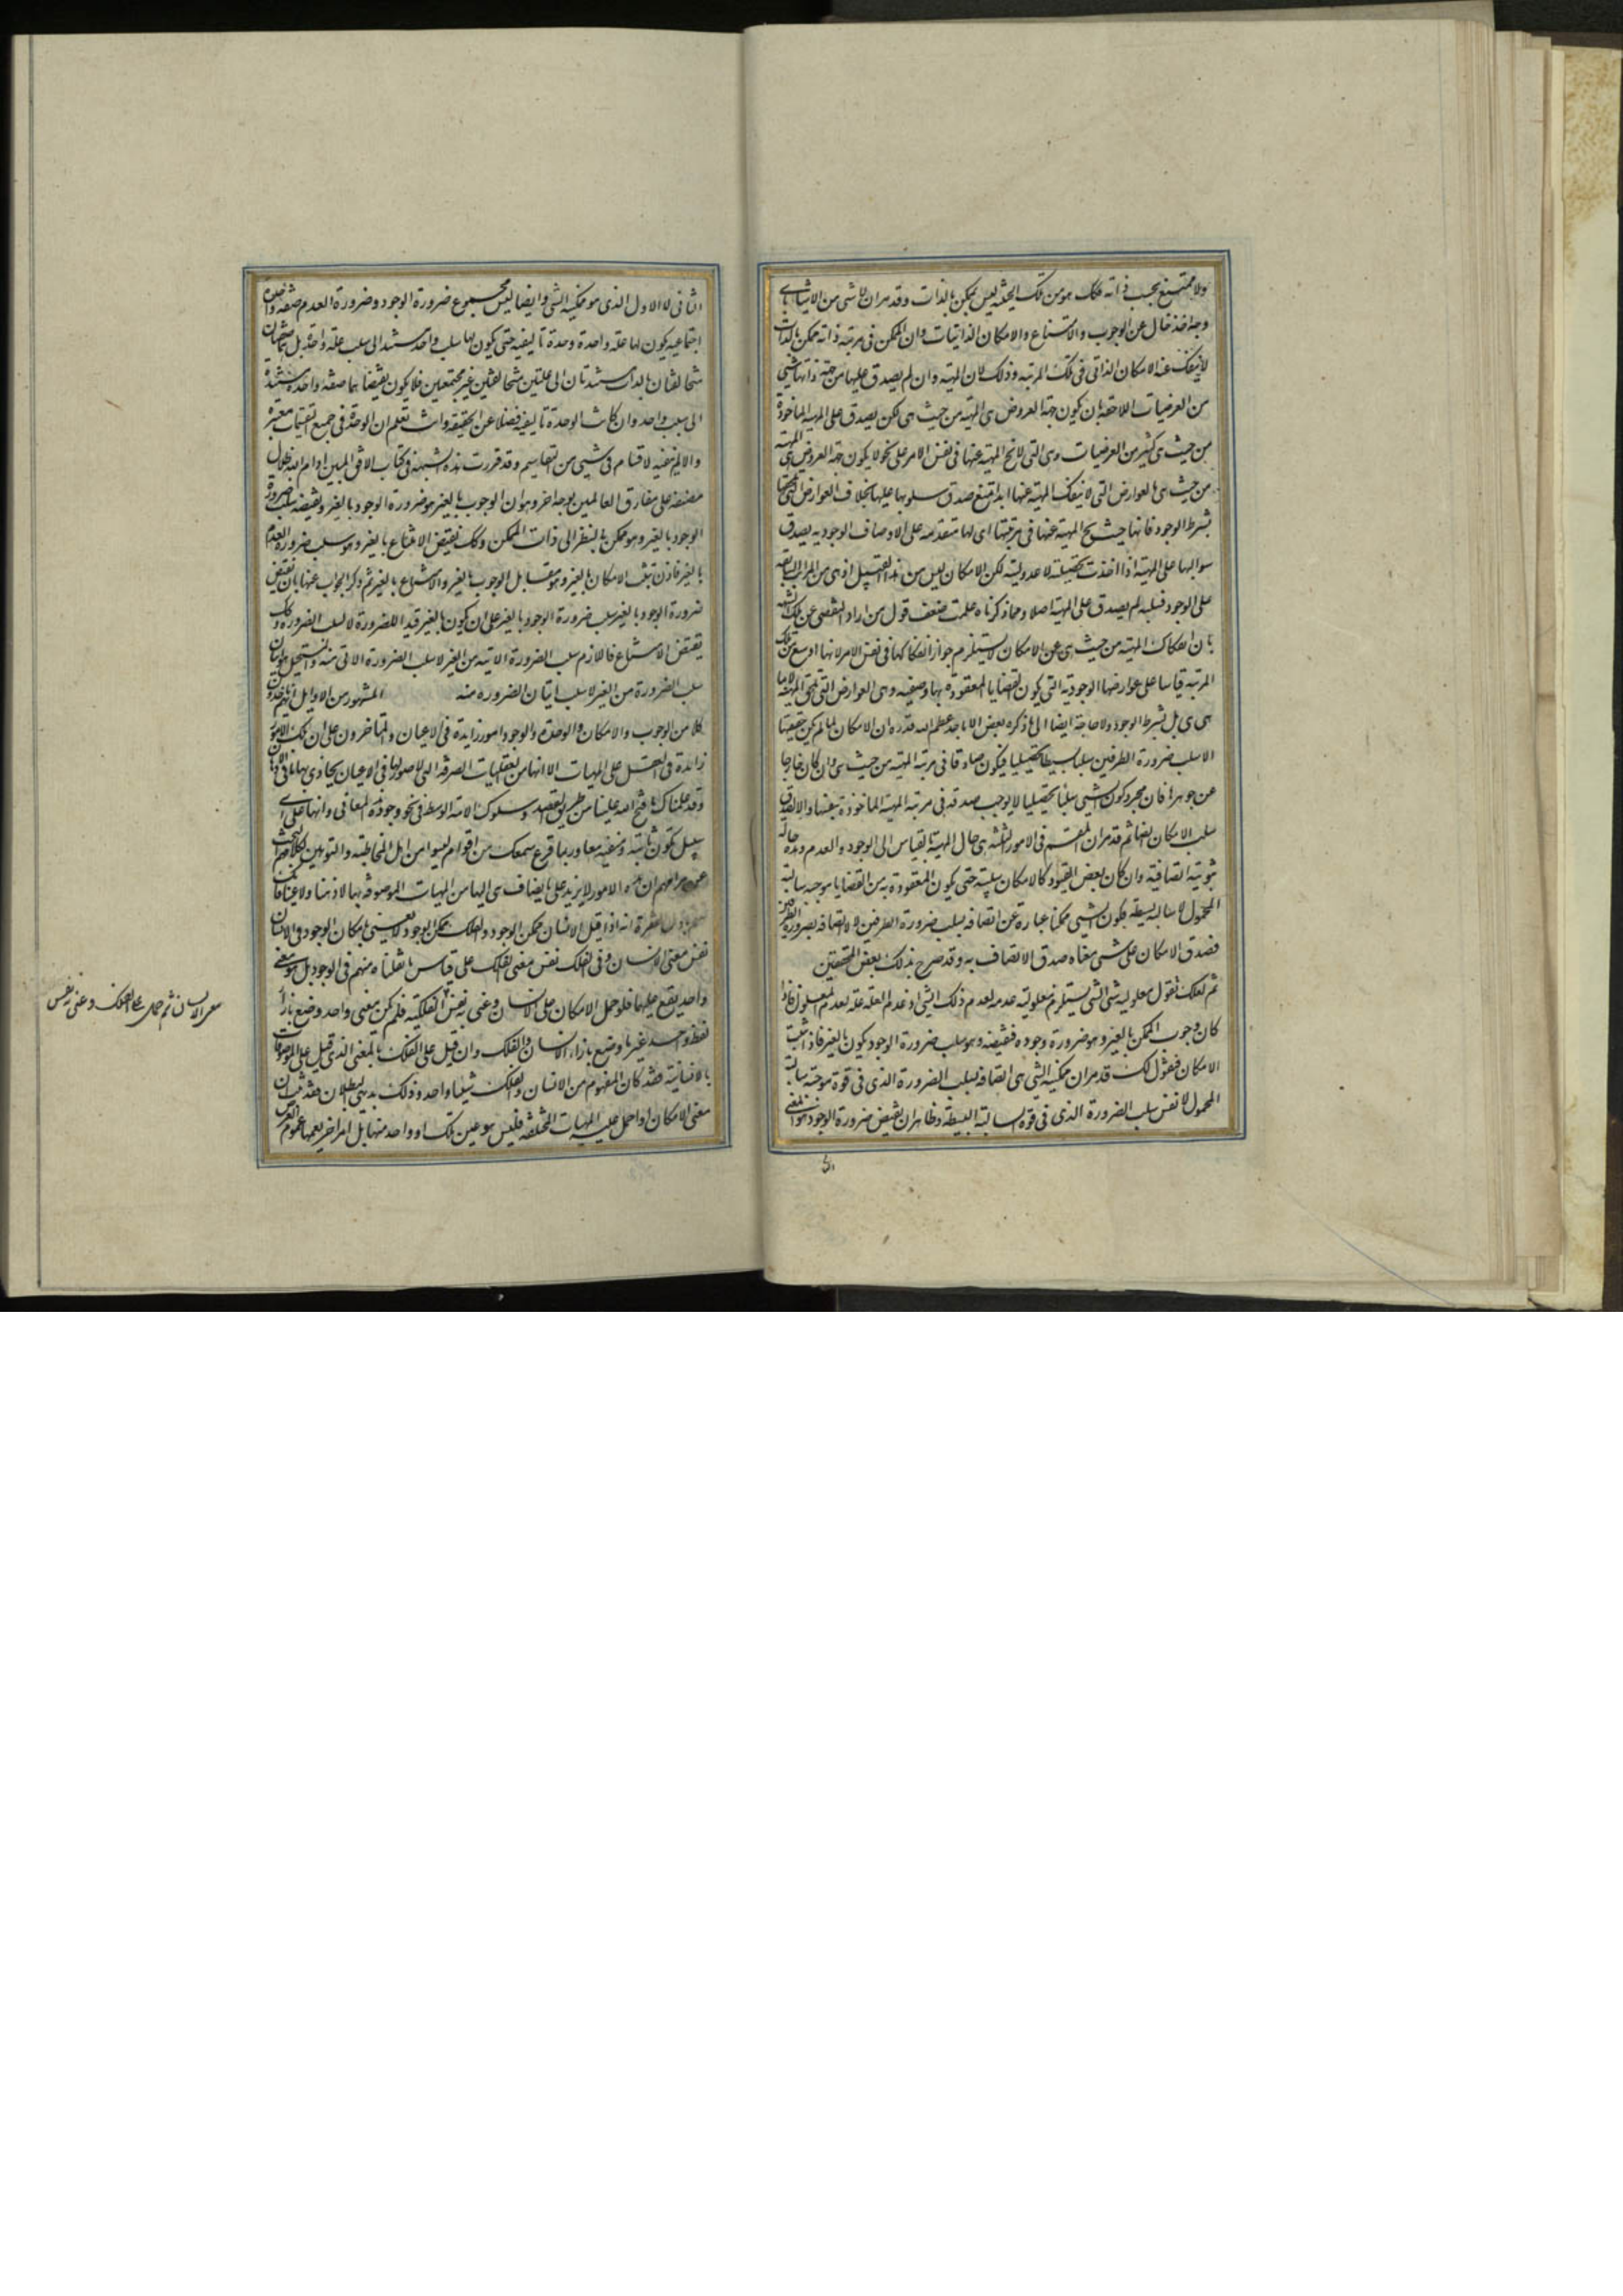 ولا ممتنع بحسب ذاته فكك هو من تلك الحيثية ليس يمكن بالذات وقد مر ان لا شي من الاشياء باى
وجه اخذ خال عن الوجوب والامتناع والامكان الذاتيات وان الممكن فى مرتبة ذاته ممكن بالذات
لا ينفك عنه الامكان الذاتى فى تلك المرتبه وذلك لان المهية وان لم يصدق عليها من جهة ذاتها شى
من العرضيات اللاحقة بان يكون جهة العروض هى المهية من حيث هى لكن يصدق على المهية الماخوذة
من حيث هى كثير من العرضيات وهى التى لا تخ المهية عنها فى نفس الامر على نحو لا يكون جهة العروض هى المهية
من حيث هى فالعوارض التى لا ينفك المهية عنها ابدا يمتنع صدق سلوبها عليها بخلاف العوارض التى تلحقها
بشرط الوجود فانها حيث يخ المهية عنها فى مرتبتها اى لها متقدمة على الاوصاف الوجودية يصدق
سوالبها على المهية اذا اخذت تحصيلية لا عدولية لكن الامكان ليس من هذا القبيل اذ هى من المراتب السابقة
على الوجود فسلبه لم يصدق على المهية اصلا ومما ذكرناه علمت ضعف قول من اراد التفصى عن تلك الشبهة
بان انفكاك المهية من حيث هى عن الامكان لا يستلزم جواز انفكاكها فى نفس الامر لانها اوسع من تلك
المرتبة قياسا على عوارضها الوجودية التى يكون القضايا المعقودة بها وصفية وهى العوارض التى تلحق المهية لا بما
هى هى بل بشرط الوجود ولا حاجة ايضا الى ما ذكره بعض الاماجد عظم الله قدره ان الامكان لما لم يكن حقيقتها
الا سلب ضرورة الطرفين سلبا بسيطا تحصيليا فيكون صادقا فى مرتبة المهية من حيث هى وان كان خارجا
عن جوهرها فان مجرد كون الشى سلبا تحصيليا لا يوجب صدقه فى مرتبة المهية الماخوذة بنفسها والا لصدق
سلب الامكان ايضا ثم قد مر ان المقسم فى الامور الثلثة هى حال المهية بالقياس الى الوجود والعدم وهذه حالة
ثبوتية اتصافية وان كان بعض القيود كالامكان سلبية حتى يكون المعقودة به من القضايا موجبة سالبة
المحمول لا سالبة بسيطة فكون الشى ممكنا عبارة عن اتصافه بسلب ضرورة الطرفين لا لا اتصافه بضرورة الطرفين
فصدق الامكان على شى معناه صدق الاتصاف به وقد صرح بذلك بعض المحققين
ثم لعلك تقول معلولية شى لشى يستلزم معلولية عدمه لعدم ذلك الشى اذ عدم العلة علة لعدم المعلول فاذا
كان وجوب الممكن بالغير وهو ضرورة وجوده فنقيضه وهو سلب ضرورة الوجود يكون بالغير فاذن ثبت
الامكان فنقول لك قد مر ان ممكنية الشى هى اتصافه بسلب الضرورة الذى فى قوة موجبة سالبة
المحمول لا نفس سلب الضرورة الذى فى قوة السالبة البسيطة وظاهر ان نقيض ضرورة الوجود هو المعنى
الثانى لا الاول الذى هو ممكنية الشى وايضا ليس مجموع ضرورة الوجود وضرورة العدم صفة واحدة
اجتماعية يكون لها علة واحدة وحدة تاليفية حتى يكون لها سلب واحد مستند الى سلب علة واحدة بل هما صفتان
متخالفتان بالذات مستندتان الى علتين متخالفتين غير مجتمعتين فلا يكون نقيضا هما صفة واحدة مستندة
الى سلب واحد وان كانت الوحدة تاليفية فضلا عن الحقيقة وانت تعلم ان الوحدة فى جميع التقسيمات معتبرة
والا لم ينضبط الاقسام فى شى من التقاسيم وقد قررت هذه الشبهة فى كتاب الافق المبين ادام الله ظلال
مصنفه على مفارق العالمين بوجه اخر وهو ان الوجوب بالغير هو ضرورة الوجود بالغير ونقيضه سلب ضرورة
الوجود بالغير وهو ممكن بالنظر الى ذات الممكن وكك نقيض الامتناع بالغير وهو سلب ضرورة العدم
بالغير فاذن ثبت الامكان بالغير وهو مقابل الوجوب بالغير والامتناع بالغير ثم ذكر الجواب عنها بان نقيض
ضرورة الوجود بالغير سلب ضرورة الوجود بالغير على ان يكون بالغير قيد اللضرورة لا لسلب الضرورة وكك
نقيض الامتناع فاللازم سلب الضرورة الاتية من الغير لا سلب الضرورة الاتى منه والمستحيل هو اتيان
سلب الضرورة من الغير لا سلب اتيان الضرورة منه المشهور من الاوايل انهم ياخذون
كلا من الوجوب والامكان والوحدة والوجود امورا زايدة فى الاعيان والمتاخرون على ان تلك الامور
زايدة فى العقل على المهيات الا انها من العقليات الصرفة التى لا صورة لها فى الاعيان يحاذى بها ما فى الاذهان
وقد علمناك ما فتح الله علينا من طريق القصد وسلوك الامة الوسط فى نحو وجود هذه المعانى وانها على اى
سبيل تكون ثابتة ومنفية معا وربما قرع سمعك من اقوام ليسوا من اهل المخاطبة والتوهين لكلامهم البحث
عن مرامهم ان هذه الامور لا يزيد على ما يضاف هى اليها من المهيات الموصوفة بها لا ذهنا ولا عينا فان
انه اذا قيل الانسان ممكن الوجود والفلك ممكن الوجود لا يعنى بامكان الوجود فى الانسان
نفس معنى الانسان وفى الفلك نفس معنى الفلك على قياس ما نقلناه منهم فى الوجود بل هو معنى
واحد يقع عليهما فلو حمل الامكان على الانسان وعنى به نفس الفلكية فلم يكن بمعنى واحد وضع بازاء
لفظ واحد غير ما وضع بازاء الانسان والفلك وان قيل على الفلك بالمعنى الذى قيل على الموصوفات
بالانسانية فقد كان المفهوم من الانسان والفلك شيئا واحدا وذلك بديهى البطلان فقد ثبت ان
معنى الامكان اذا حمل على المهيات المختلفة فليس هو عين تلك او واحد منها بل امر اخر يعمها عموم العرض
معنى الانسان ثم حمل على الفلك وعنى به نفس